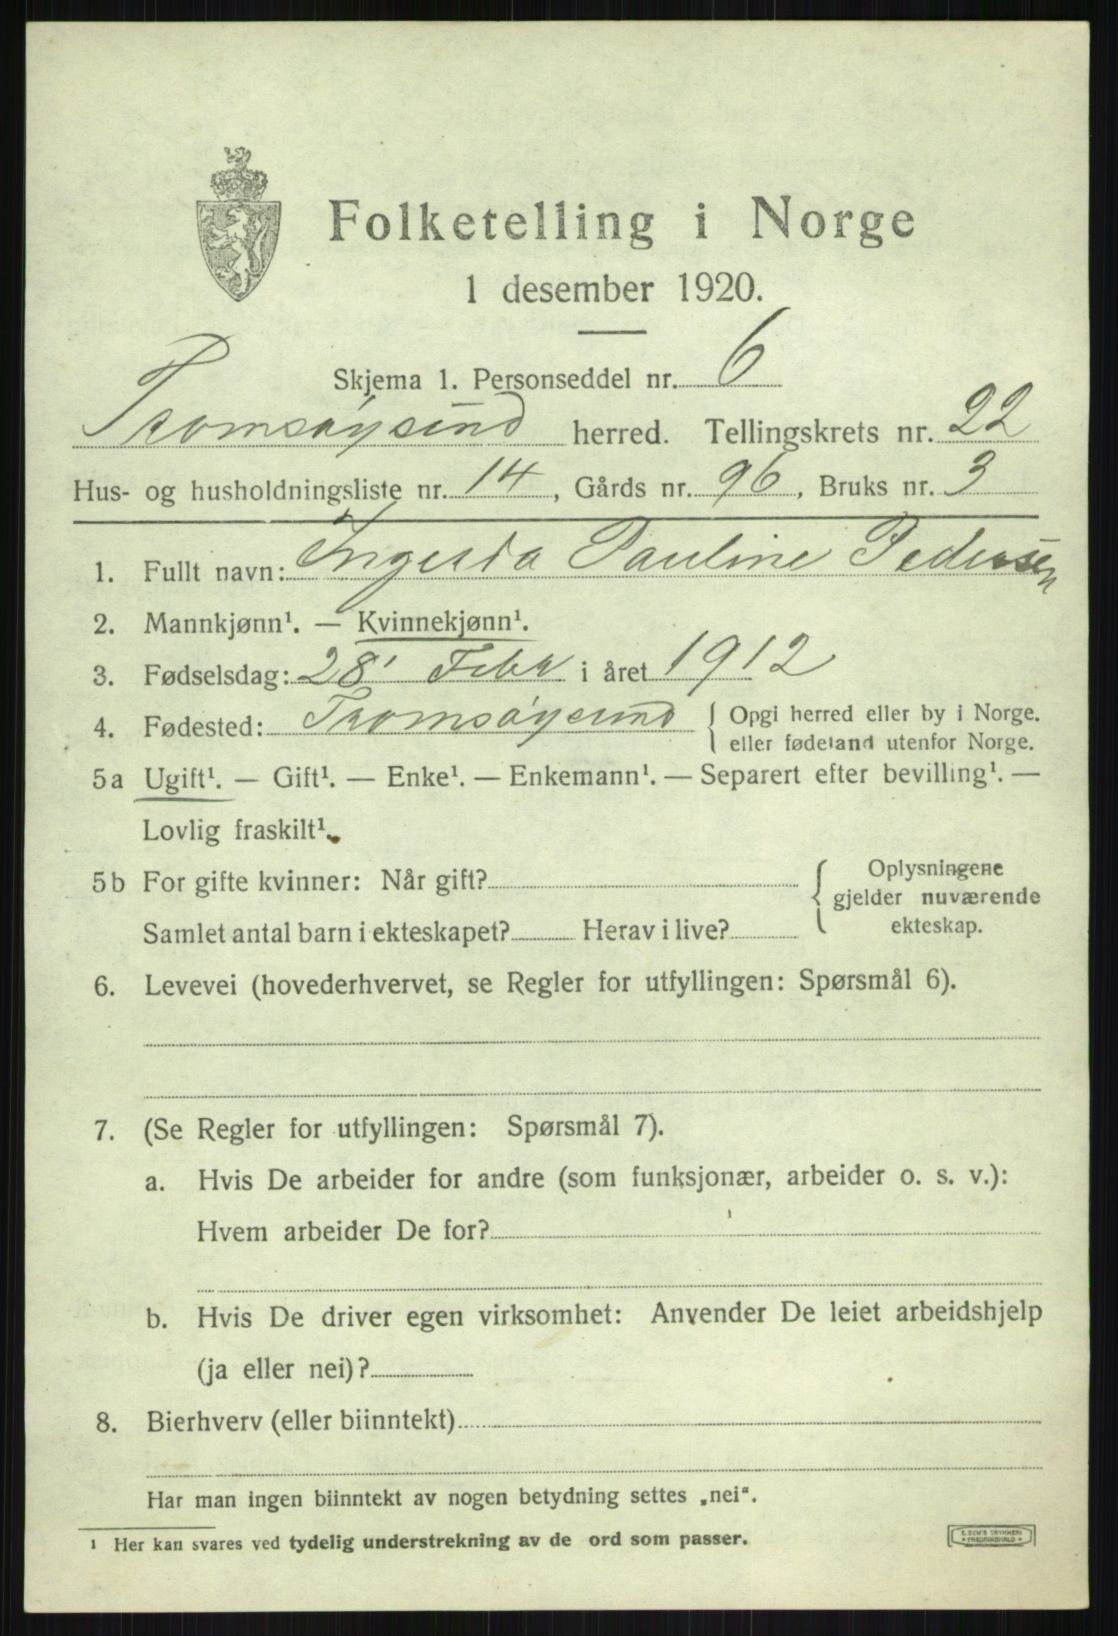 Folketelling i Norge
1 desember 1920.
Skjema 1. Personseddel nr. 6
Tromsøysund herred. Tellingskrets nr. 22
Hus- og husholdningsliste nr. 14, Gårds nr. 96, Bruks nr. 3
1. Fullt navn: Pauline Pedersen
2. Mannkjønn¹. — Kvinnekjønn¹.
3. Fødselsdag: 28' Febr i året 1912
4. Fødested: Tromsøysund { Opgi herred eller by i Norge.
eller fødeland utenfor Norge.
5a Ugift¹. — Gift¹. — Enke¹. — Enkemann¹. — Separert efter bevilling¹. —
Lovlig fraskilt¹.
5b For gifte kvinner: Når gift? { Oplysningene
gjelder nuværende
Samlet antal barn i ekteskapet? Herav i live? ekteskap.
6. Levevei (hovederhvervet, se Regler for utfyllingen: Spørsmål 6).
7. (Se Regler for utfyllingen: Spørsmål 7).
a. Hvis De arbeider for andre (som funksjonær, arbeider o. s. v.):
Hvem arbeider De for?
b. Hvis De driver egen virksomhet: Anvender De leiet arbeidshjelp
(ja eller nei)?
8. Bierhverv (eller biinntekt)
Har man ingen biinntekt av nogen betydning settes „nei".
¹ Her kan svares ved tydelig understrekning av de ord som passer.